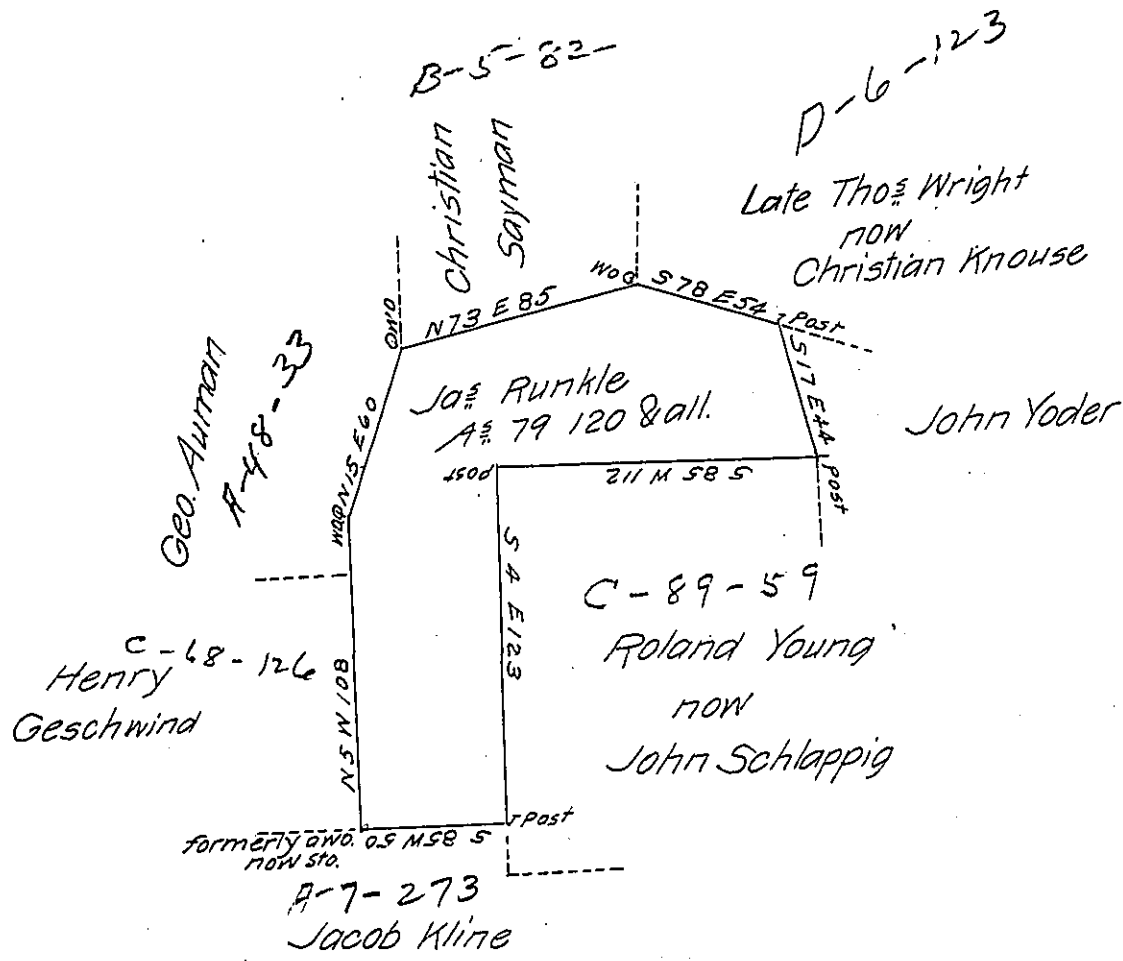 B-5-82-
D-6-123
Christian
Sayman
Late Thos Wright
now
Christian Knouse
WO
S 78 E 54
Post
N 73 E 85
S 17 E 44
Geo. Auman
A-48-33
N 15 E 60
Jas Runkle
As 79 120 & all.
John Yoder
Post
S 85 W 112
Post
S 4 E 123
C-89-59
Roland Young
now
John Schlappig
C-68-126
Henry
Geschwind
N 5 W 108
Post
formerly a wo.
now sto.
S 85 W 50
A-7-273
Jacob Kline